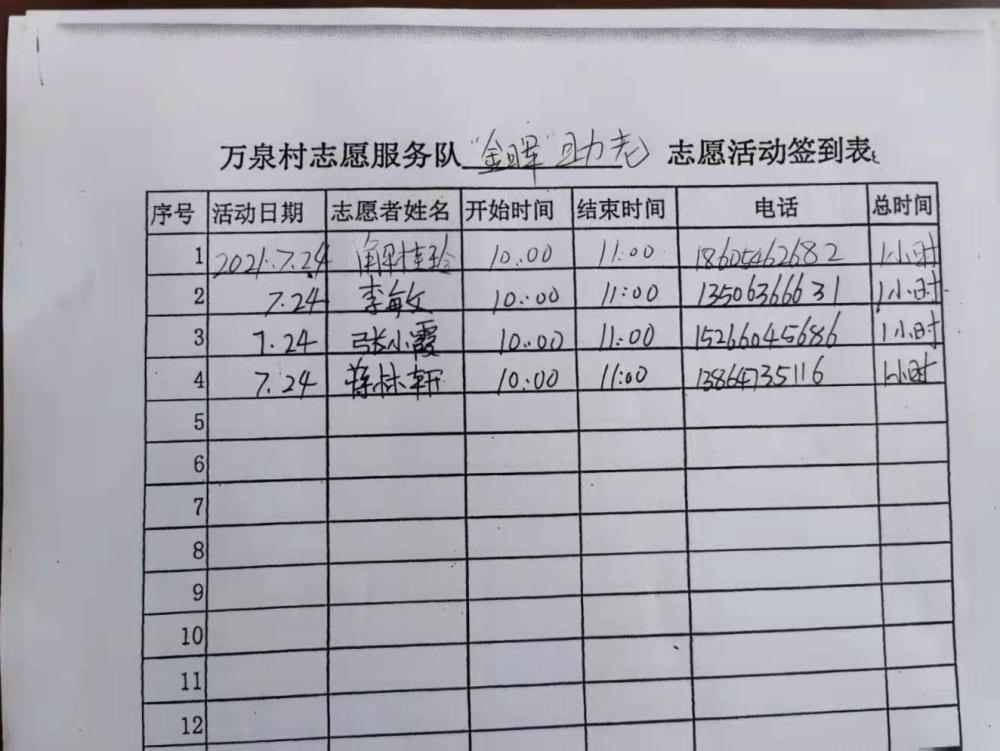 万泉村志愿服务队“金晖”助老 志愿活动签到表
序号 活动日期 志愿者姓名 开始时间 结束时间 电话 总时间
1 2021.7.24 解桂玲 10:00 11:00 18605462682 1小时
2 7.24 李敏 10:00 11:00 13506366631 1小时
3 7.24 张小霞 10:00 11:00 15266045686 1小时
4 7.24 林轩 10:00 11:00 13864735116 1小时
5
6
7
8
9
10
11
12